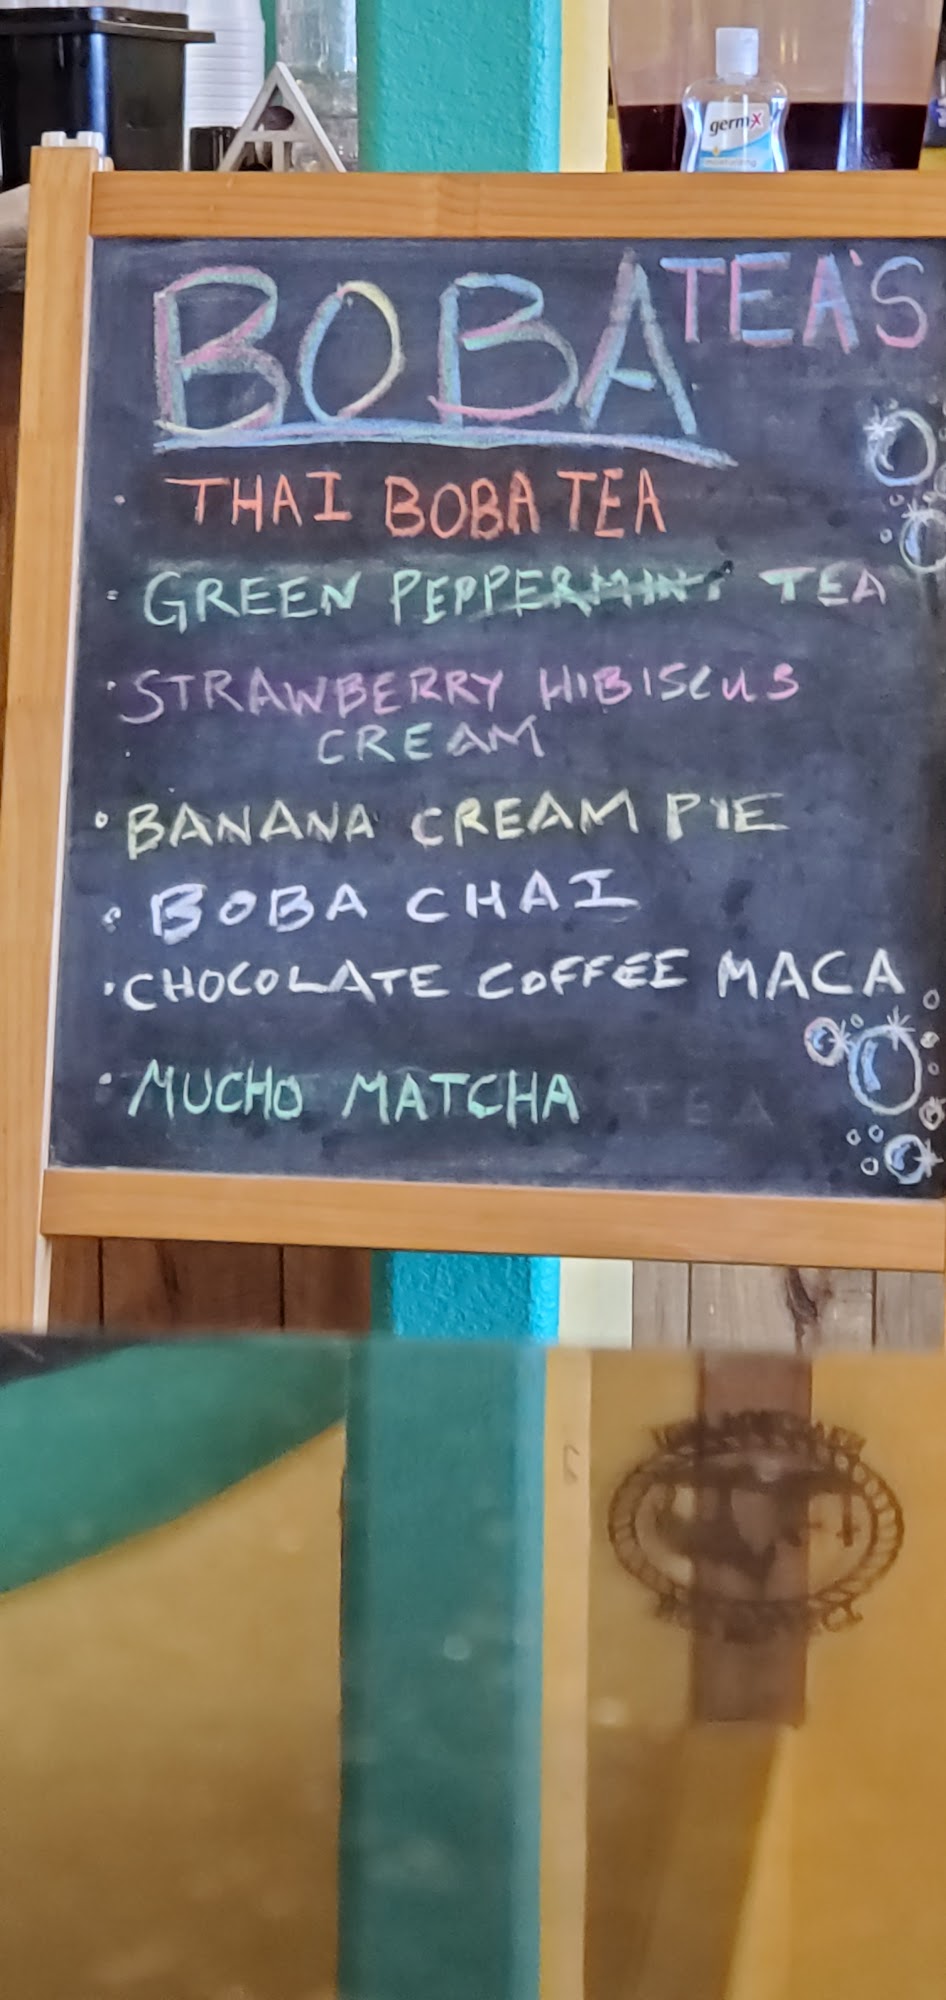 germ-X
moisturizing
BOBA TEA'S
THAI BOBA TEA
GREEN PEPPERMINT TEA
STRAWBERRY HIBISCUS
CREAM
BANANA CREAM PIE
BOBA CHAI
CHOCOLATE COFFEE MACA
MUCHO MATCHA TEA